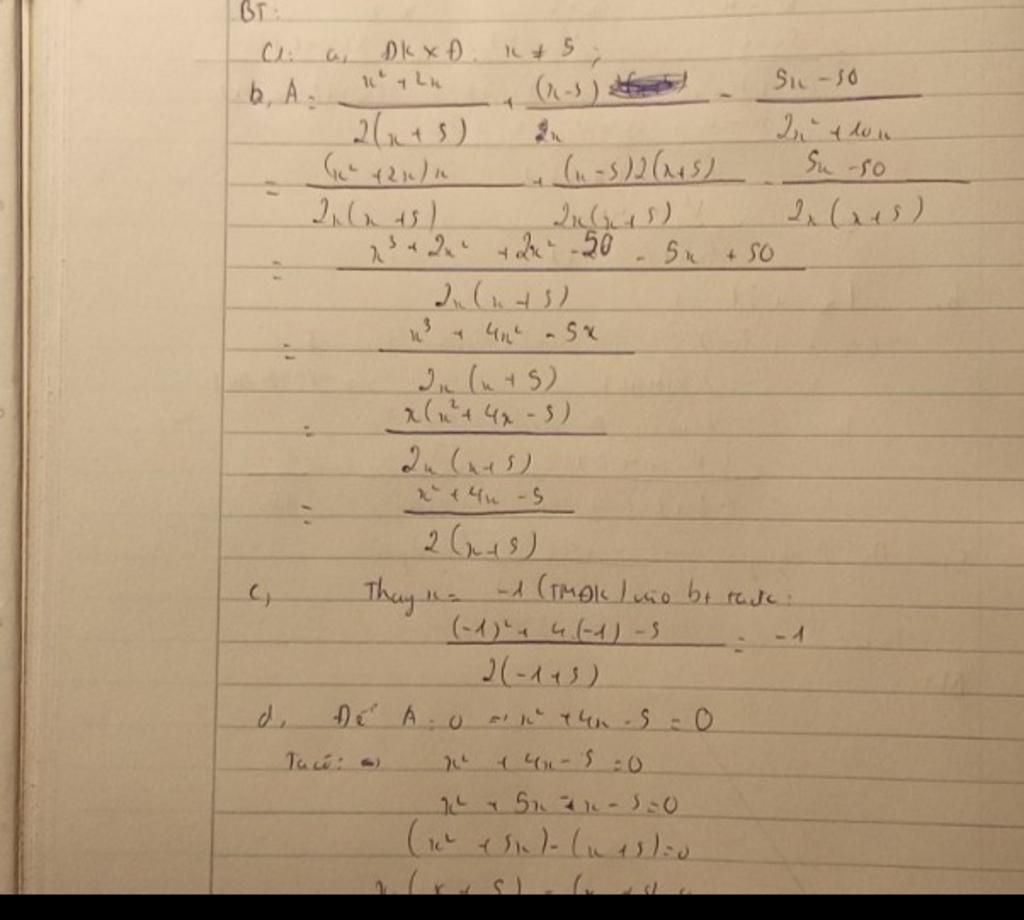 BT:
C1: a, ĐKXĐ: x ≠ 5;
b, A = (x² + 2x)/(2(x + 5)) + (x-5)/(2x) - (5x - 50)/(2x² + 10x)
= ((x² + 2x)x)/(2x(x + 5)) + ((x-5)2(x+5))/(2x(x+5)) - (5x - 50)/(2x(x+5))
= (x³ + 2x² + 2x² - 50 - 5x + 50)/(2x(x+5))
= (x³ + 4x² - 5x)/(2x(x+5))
= (x(x² + 4x - 5))/(2x(x+5))
= (x² + 4x - 5)/(2(x+5))
c, Thay x = -1 (TMĐK) vào bt
((-1)² + 4(-1) - 5)/(2(-1+5)) = -1
d, Để A = 0 => x² + 4x - 5 = 0
Ta có: => x² + 4x - 5 = 0
x² + 5x - x - 5 = 0
(x² + 5x) - (x + 5) = 0
x(x + 5) - (x + 5)